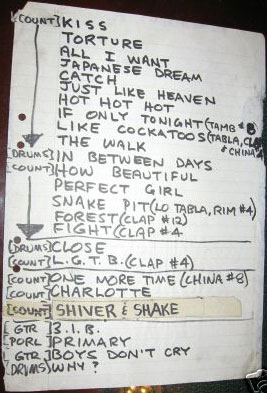 [COUNT] KISS
TORTURE
ALL I WANT
JAPANESE DREAM
CATCH
JUST LIKE HEAVEN
HOT HOT HOT
IF ONLY TONIGHT (TAMB #8
LIKE COCKATOOS (TABLA, CLAP
& CHINA
THE WALK
[DRUMS] IN BETWEEN DAYS
[COUNT] HOW BEAUTIFUL
PERFECT GIRL
SNAKE PIT (LO TABLA, RIM #4)
FOREST (CLAP #12)
FIGHT (CLAP #4
[DRUMS] CLOSE
[COUNT] L.G.T.B. (CLAP #4)
[COUNT] ONE MORE TIME (CHINA #8)
[COUNT] CHARLOTTE
[COUNT] SHIVER & SHAKE
[GTR] 3.I.B.
[PORL] PRIMARY
[GTR] BOYS DON'T CRY
[DRUMS] WHY?